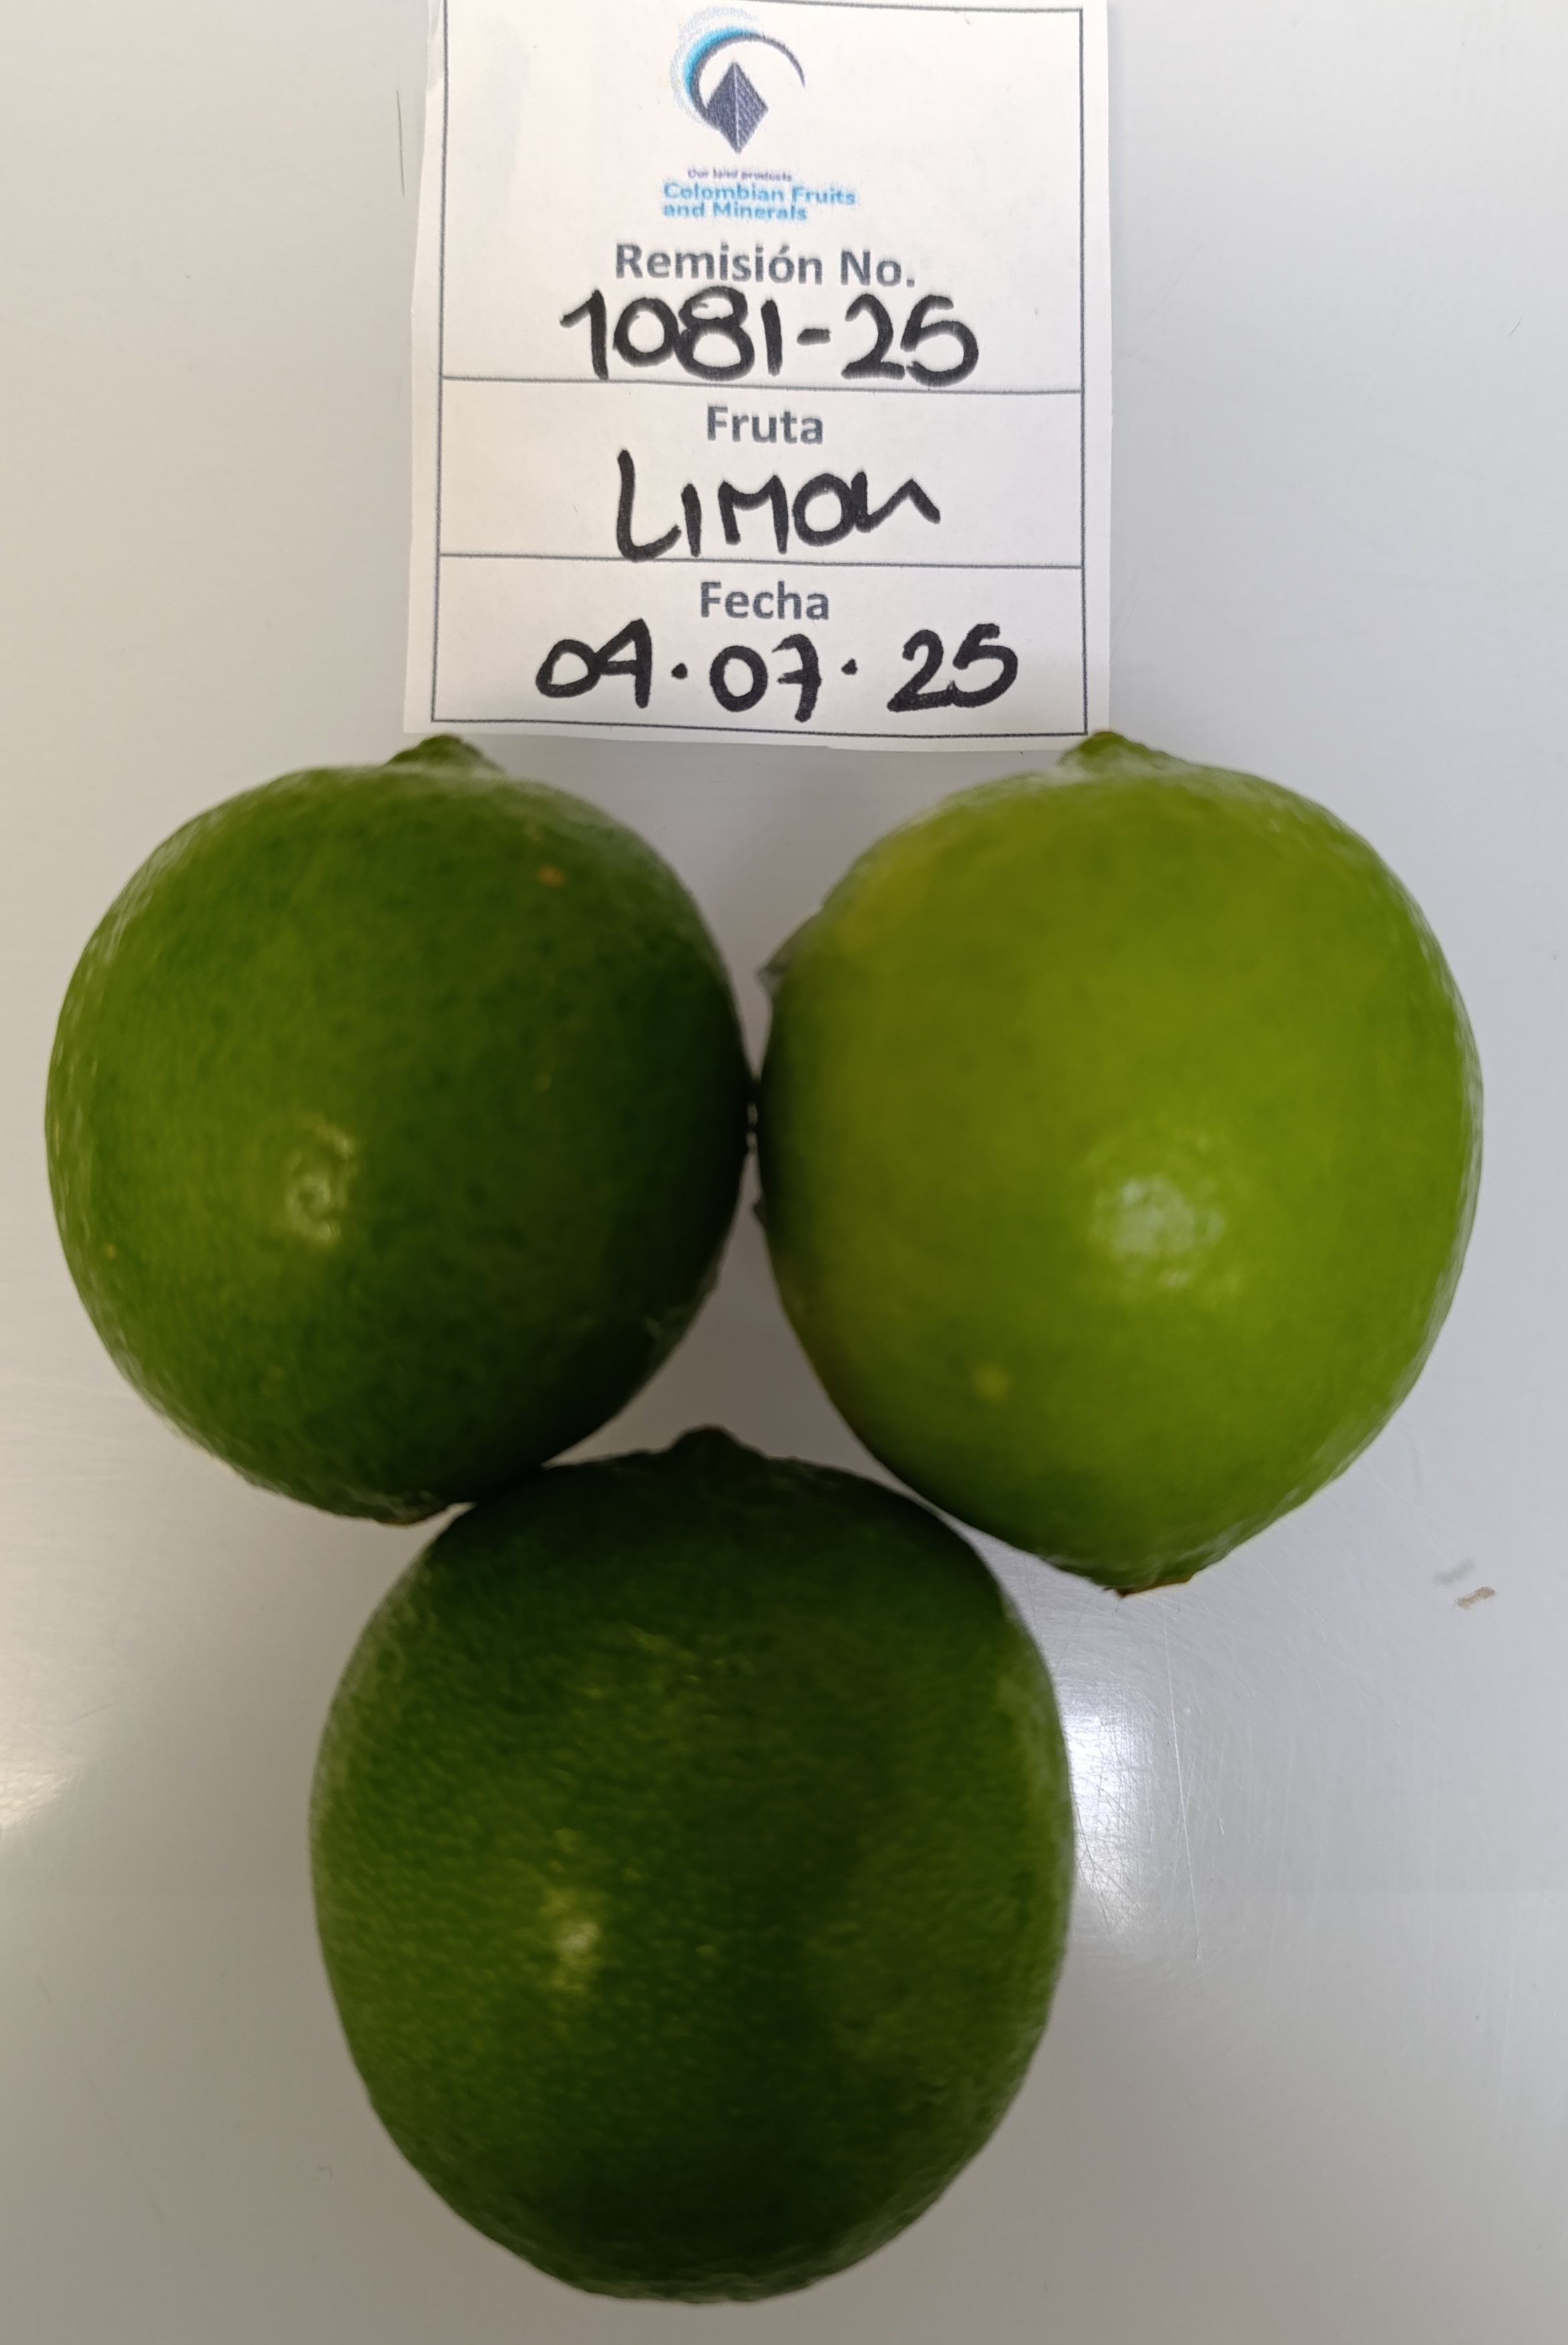 Our land products
Colombian Fruits
and Minerals
Remisión No.
1081-25
Fruta
LIMON
Fecha
04.07.25